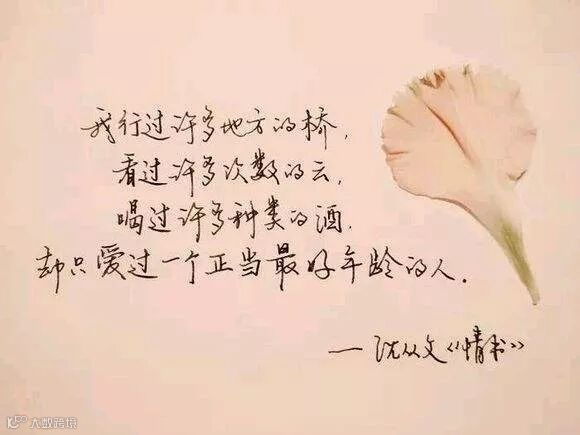 我行过许多地方的桥，
看过许多次数的云，
喝过许多种类的酒，
却只爱过一个正当最好年龄的人．
一沈从文《情书》
大数跨境